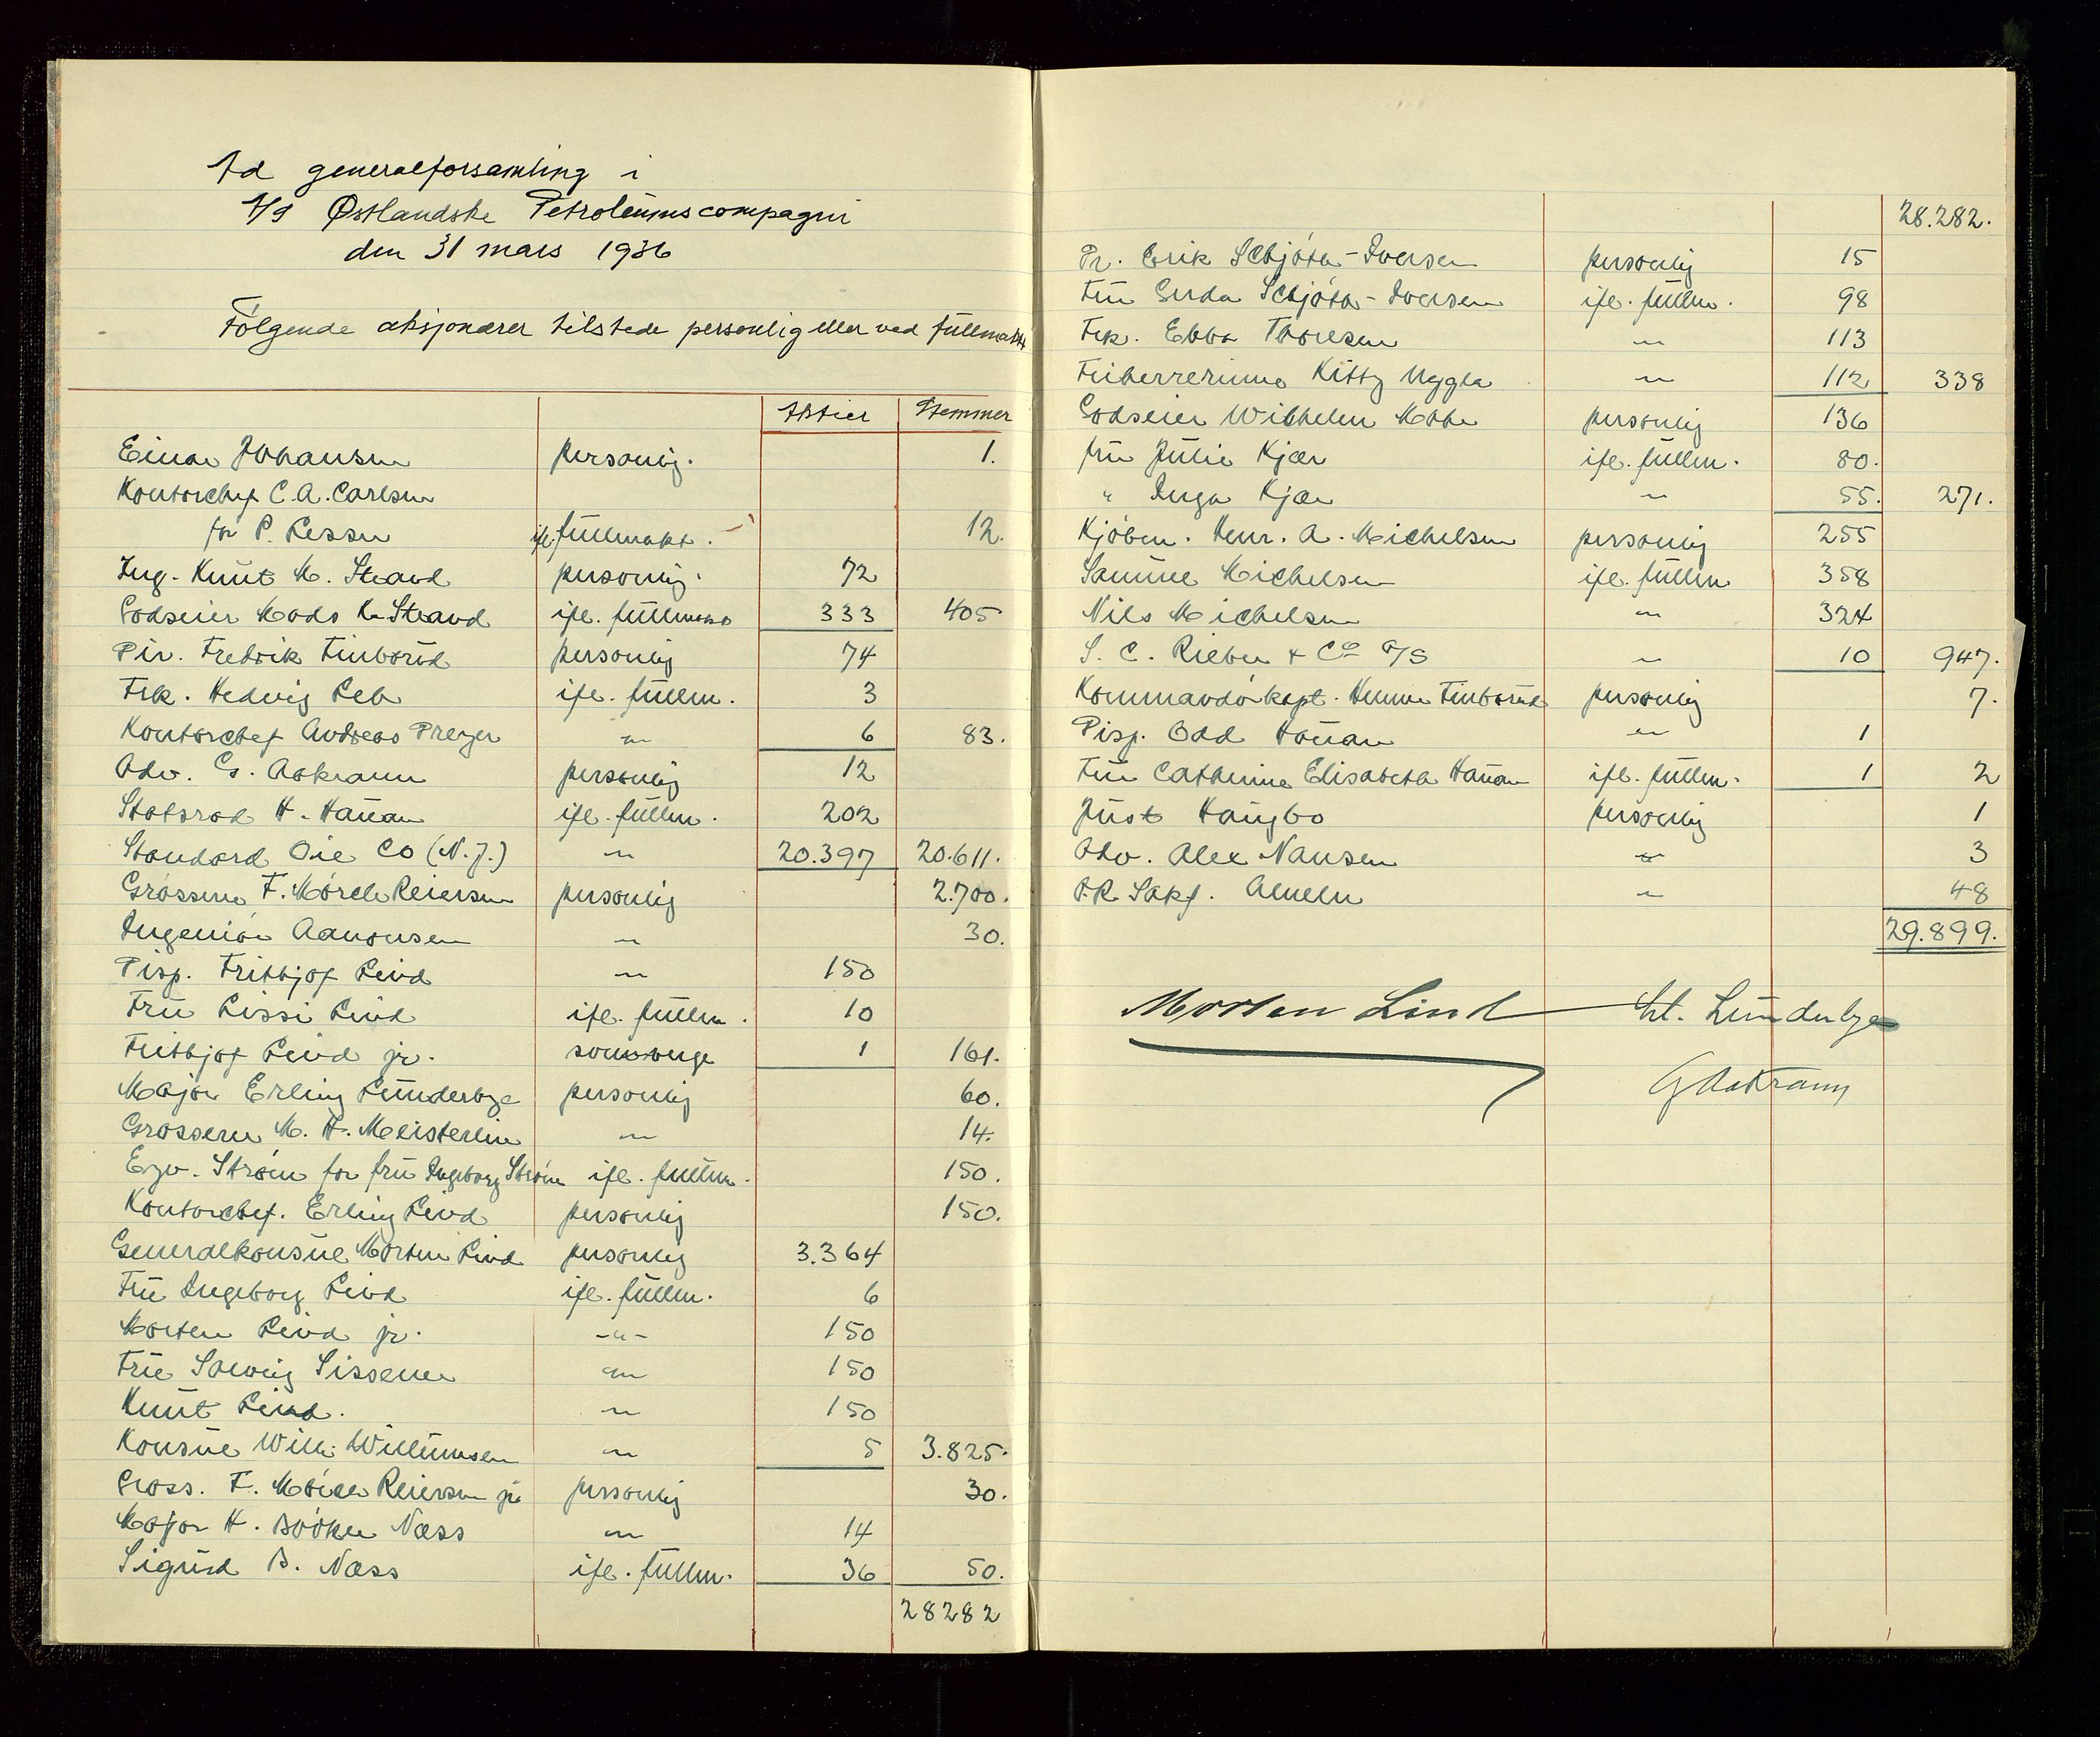 Ad generalforsamling i
A/S Østlandske Petroleumscompagni
den 31 mars 1936
Følgende aksjonærer tilstede personlig eller ved fullmakt
Aktier Stemmer
Einar Johansen personlig. 1.
Kontorchef C.A. Carlsen
for P. Lessen ifl. fullmakt. 12.
Ing. Knut M. Strand personlig. 72
Godseier Mads K. Strand ifl. fullmakt 333 405
Dir. Fredrik Finborud personlig 74
Frk. Hedvig Leb ifl. fullm. 3
Kontorchef Andreas Preger -"- 6 83.
Adv. G. Aakrann personlig 12
Statsråd H. Hauan ifl. fullm. 202
Standard Oil Co (N.J.) -"- 20.397 20.611.
Grosserer F. Mørch Reiersen personlig 2.700.
Ingeniør Aanonsen -"- 30.
Disp. Fritbjof Lind -"- 150
Fru Lissi Lind ifl. fullm. 10
Fritbjof Lind jr. som verge 1 161.
Major Erling Lunderbye personlig 60.
Grosserer M. H. Meisterlin -"- 14.
Strøm for fru Ingeborg Strøm ifl. fullm. 150.
Kontorchef. Erling Lind personlig 150.
Generalkonsul Morten Lind personlig 3.364
Fru Ingeborg Lind ifl. fullm. 6
Morten Lind jr. -"- 150
Fru Solveig Sissener -"- 150
Knut Lind. -"- 150
Konsul Will. Willumsen -"- 5 3.825.
Gross. F. Mørch Reiersen jr personlig 30.
Major H. Booker Næss -"- 14
Sigrid B. Næss ifl. fullm. 36 50.
28282
28.282.
Dr. Erik Schjøth-Iversen personlig 15
Fru Gerda Schjøth-Iversen ifl. fullm. 98
Frk. Ebba Thoresen -"- 113
Friherrerinne Kitty Uggla -"- 112 338
Godseier Wilhelm Mohr personlig 136
fru Julie Kjær ifl. fullm. 80.
" Inga Kjær -"- 55. 271.
Kjøbm. Henr. A. Michelsen personlig 255
Samuel Michelsen ifl. fullm 358
Nils Michelsen -"- 324
G. C. Rieber & Co A/S -"- 10 947.
Kommandørkapt. Henne Finborud personlig 7.
Disp. Odd Hauan -"- 1
Fru Cathrine Elisabeth Hauan ifl. fullm. 1 2
Just Haugbo personlig 1
Adv. Alex Nansen -"- 3
O.R. Sakf. Almeln -"- 48
29.899.
Morten Lind Lunderbye
G Aakrann